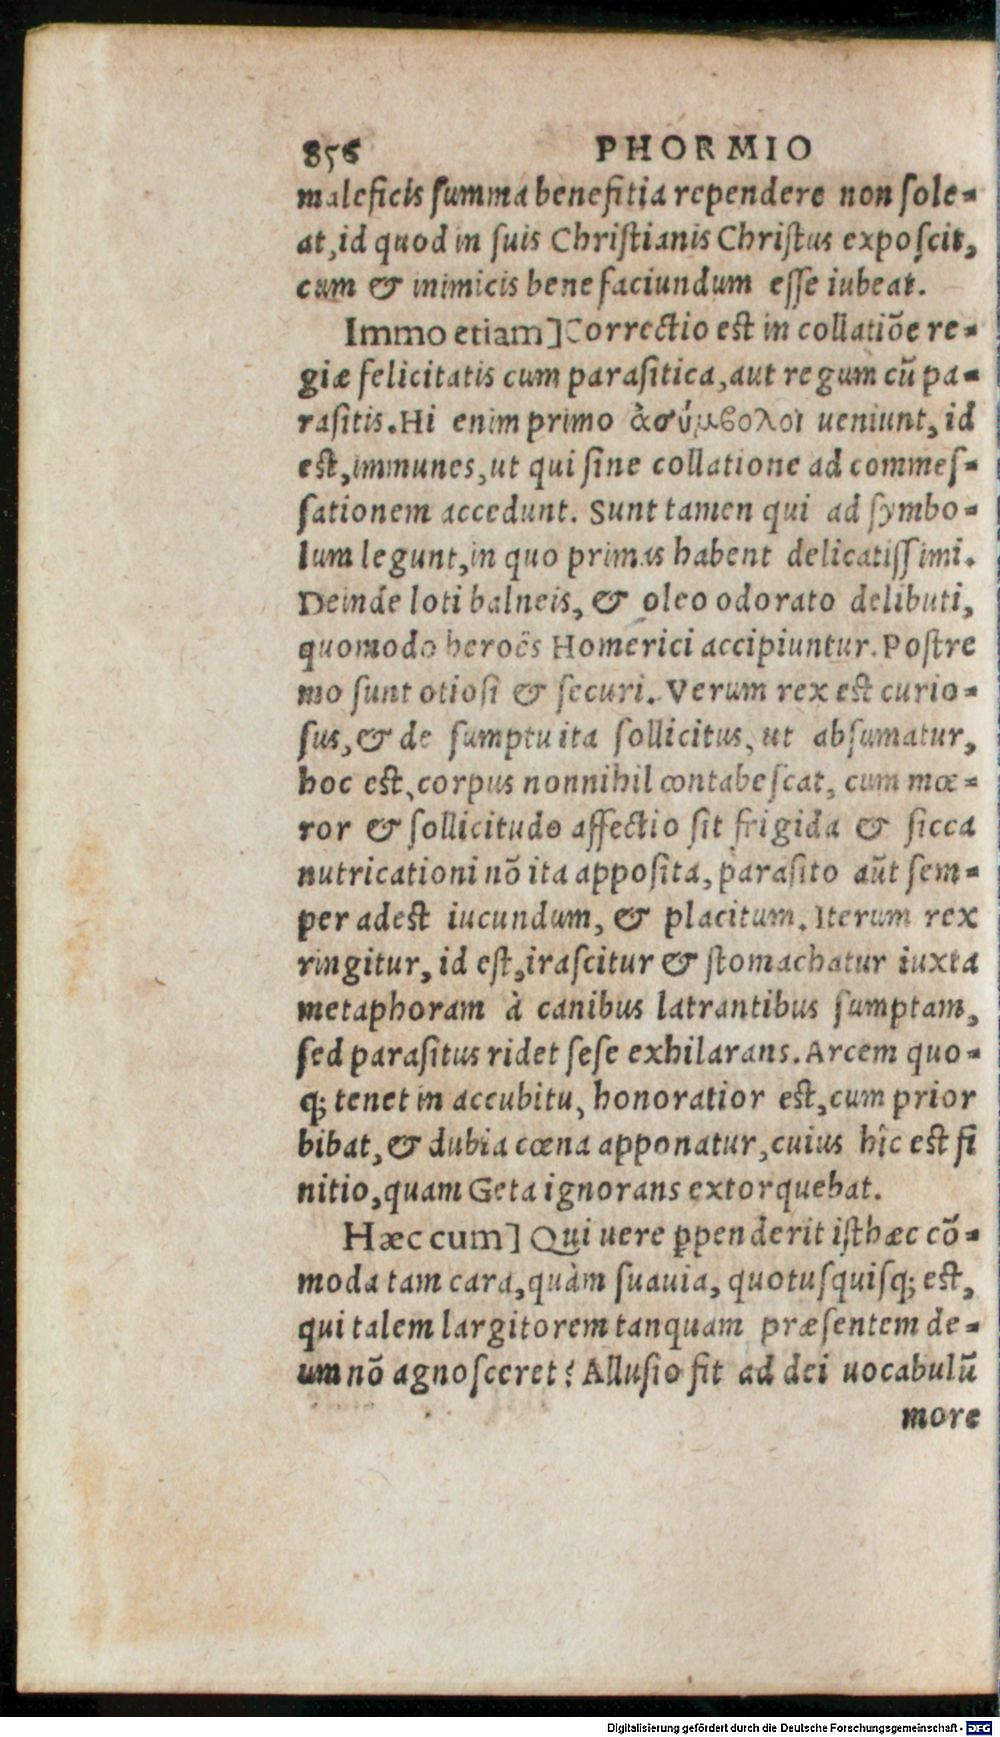 856 PHORMIO
maleficis ſumma benefitia rependere non ſole-
at, id quod in ſuis Chriſtianis Chriſtus expoſcit,
cum & inimicis bene faciundum eſſe iubeat.
Immo etiam] Correctio eſt in collatiõe re-
giæ felicitatis cum paraſitica, aut regum cũ pa-
raſitis. Hi enim primo ἀσύμβολοι ueniunt, id
eſt, immunes, ut qui ſine collatione ad commeſ-
ſationem accedunt. Sunt tamen qui ad ſymbo-
lum legunt, in quo primas habent delicatiſſimi.
Deinde loti balneis, & oleo odorato delibuti,
quomodo heroës Homerici accipiuntur. Poſtre
mo ſunt otioſi & ſecuri. Verum rex eſt curio-
ſus, & de ſumptu ita ſollicitus, ut abſumatur,
hoc eſt, corpus nonnihil contabeſcat, cum mœ-
ror & ſollicitudo affectio ſit frigida & ſicca
nutricationi nõ ita appoſita, paraſito aũt ſem-
per adeſt iucundum, & placitum. Iterum rex
ringitur, id eſt, iraſcitur & ſtomachatur iuxta
metaphoram à canibus latrantibus ſumptam,
ſed paraſitus ridet ſeſe exhilarans. Arcem quo-
q; tenet in accubitu, honoratior eſt, cum prior
bibat, & dubia cœna apponatur, cuius hîc eſt fi
nitio, quam Geta ignorans extorquebat.
Hæc cum] Qui uere ꝑpenderit iſthæc cõ-
moda tam cara, quàm ſuauia, quotuſquiſq; eſt,
qui talem largitorem tanquam præſentem de-
um nõ agnoſceret? Alluſio fit ad dei uocabulũ
more
Digitalisierung gefördert durch die Deutsche Forschungsgemeinschaft - DFG